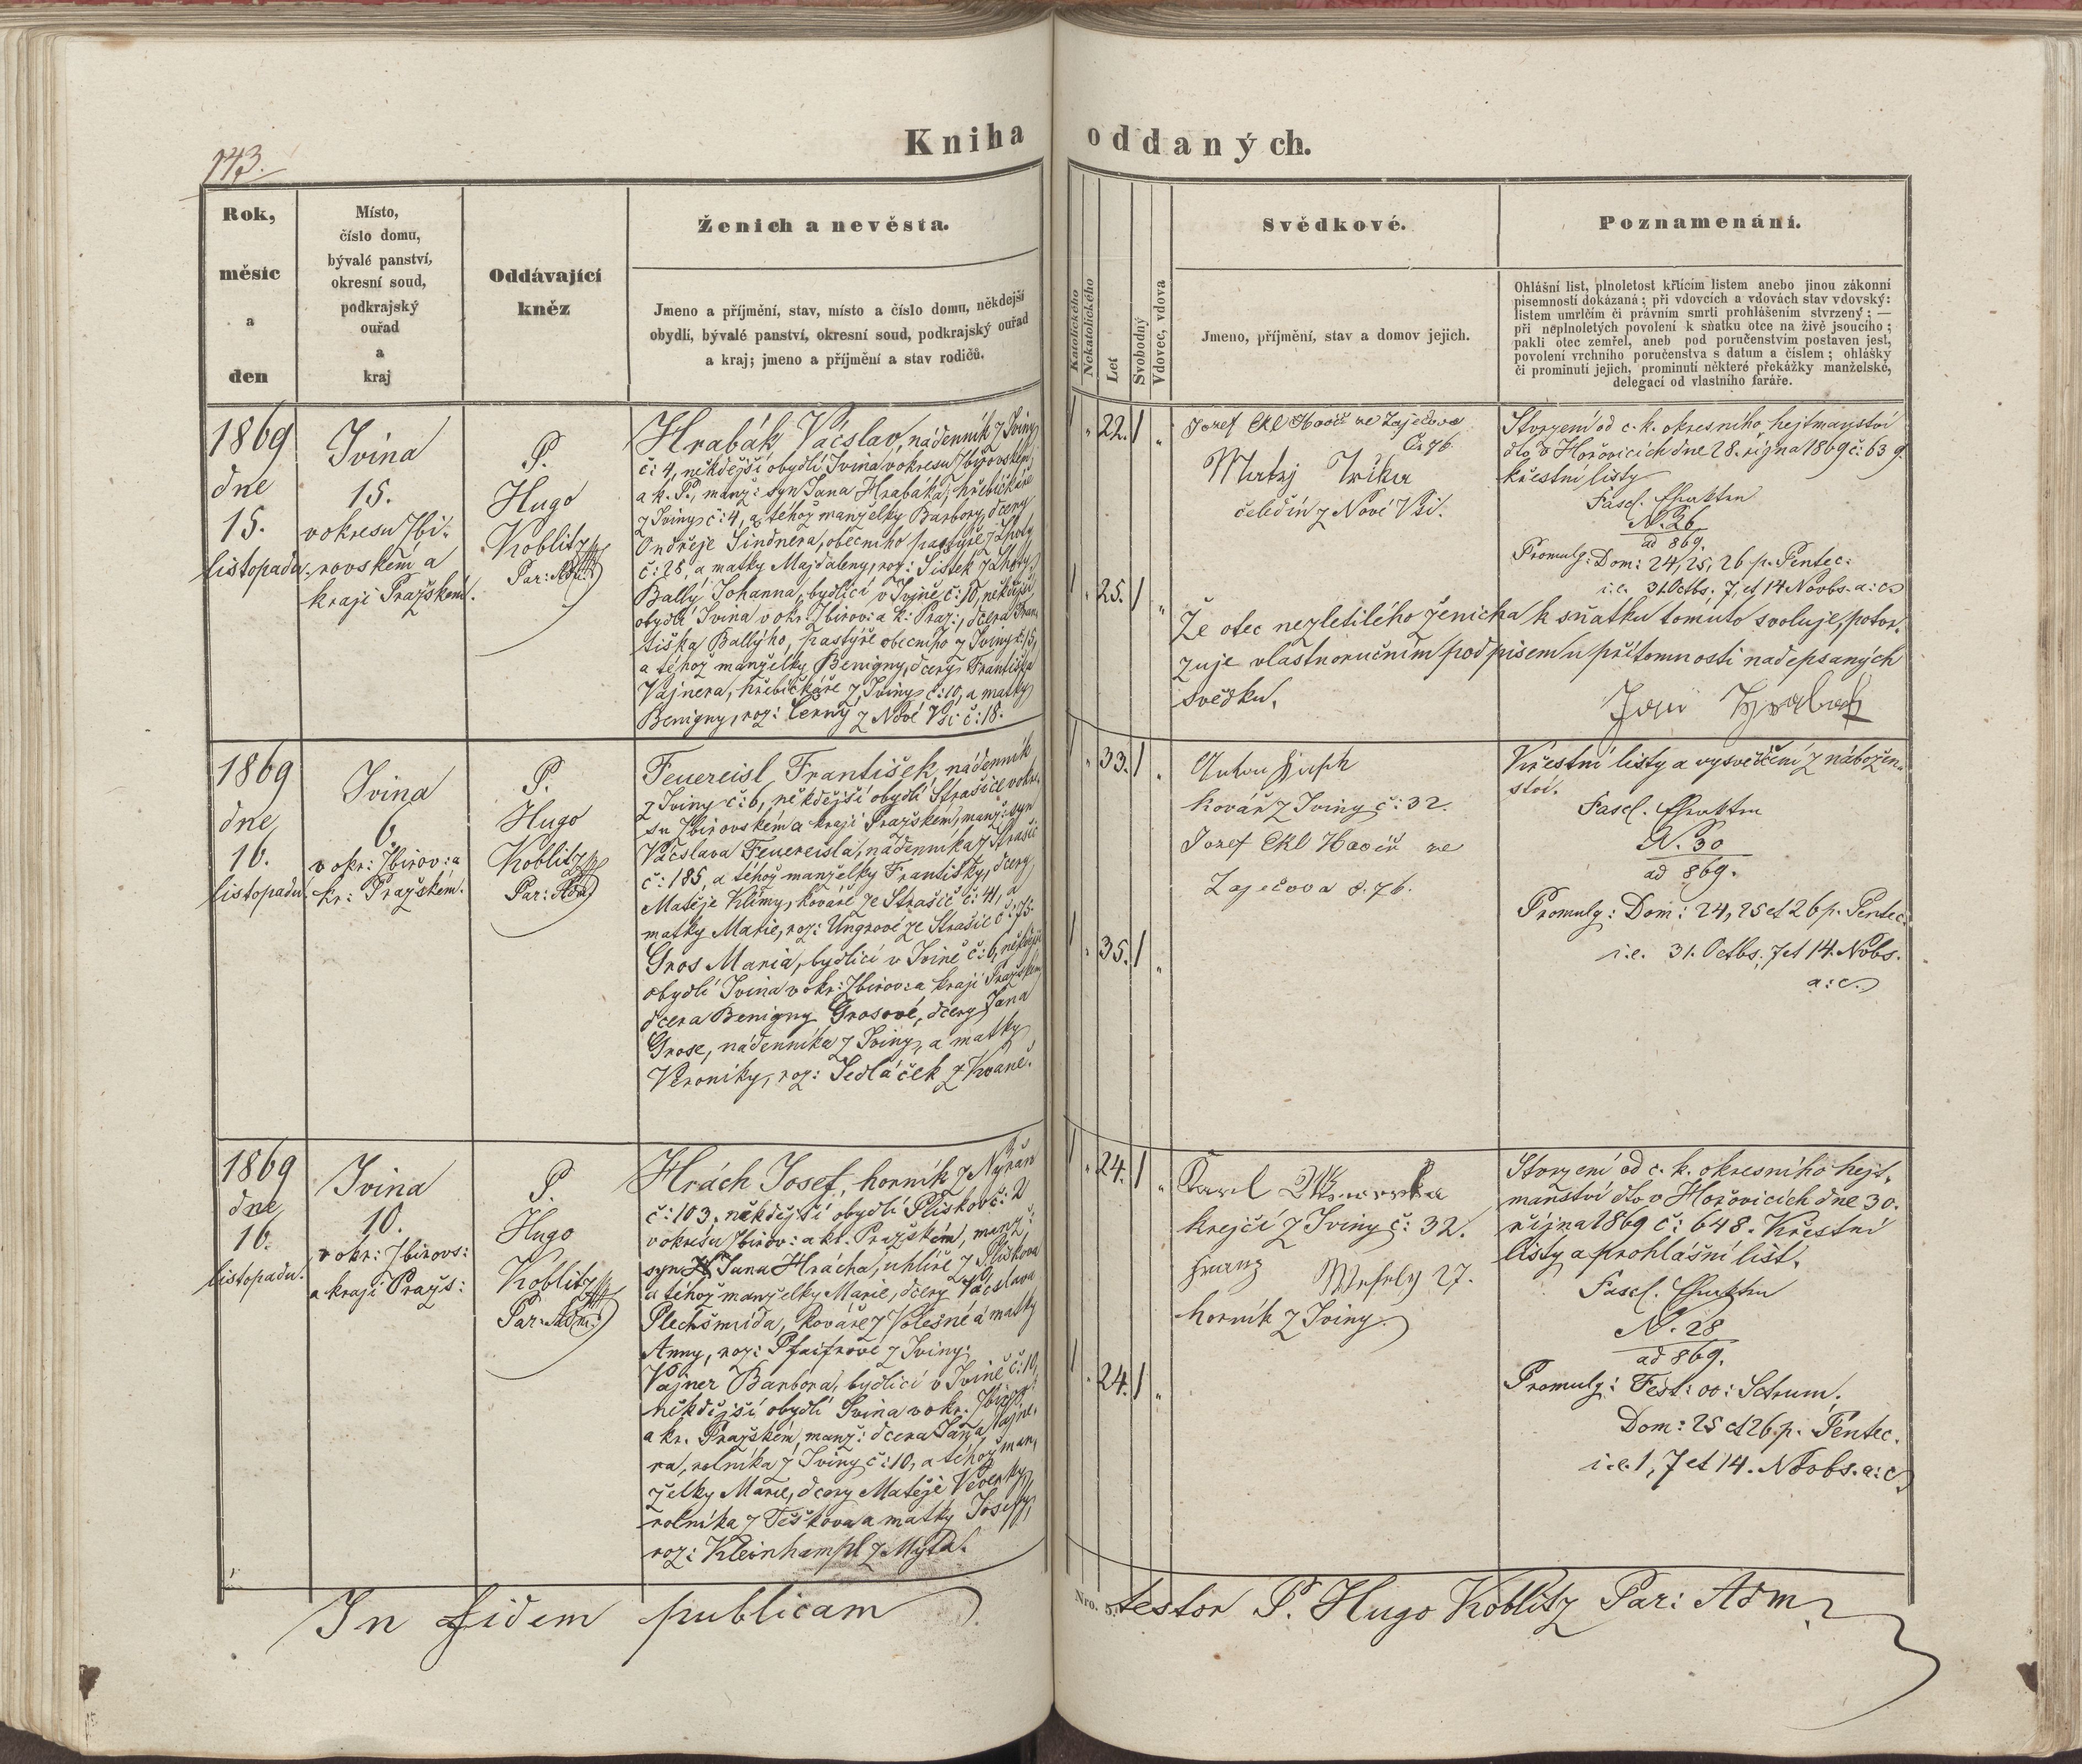 143.
Kniha oddaných.
Rok,
měsíc
a
den
Místo,
číslo domu,
bývalé panství,
okresní soud,
podkrajský
ouřad
a
kraj
Oddávající
kněz
Ženich a nevěsta.
Jmeno a příjmění, stav, místo a číslo domu, někdejší
obydlí, bývalé panství, okresní soud, podkrajský ouřad
a kraj; jmeno a příjmění a stav rodičů.
Katolického
Nekatolického
Let
Svobodný
Vdovec, vdova
Svědkové.
Jmeno, příjmění, stav a domov jejich.
Poznamenání.
Ohlášní list, plnoletost křtícím listem anebo jinou zákonní
písemností dokázaná; při vdovcích a vdovách stav vdovský:
listem umrlčím či právním smrti prohlášením stvrzený; —
při neplnoletých povolení k sňatku otce na živě jsoucího;
pakli otec zemřel, aneb pod poručenstvím postaven jest,
povolení vrchního poručenstva s datum a číslem; ohlášky
či prominutí jejich, prominutí některé překážky manželské,
delegací od vlastního faráře.
1869
dne
15.
listopadu.
Ivina
15.
v okresu Zbi-
rovském a
kraji Pražském.
P.
Hugo
Koblitz
Par: Adm:
Hrabák Václav, nádenník z Iviny
č: 4, někdejší obydlí Ivina v okresu Zbirovském
a k. P., manž: syn Jana Hrabáka, hřebíčkáře
z Iviny č: 4, a téhož manželky Barbory, dcery
Ondřeje Lindnera, obecního pastýře z Lhoty
č: 28, a matky Majdaleny, roz: Šístek z Lhoty.
Ballý Johanna, bydlící v Ivině č: 10, někdejší
obydlí Ivina v okr. Zbirov: a k: Praž:, dcera Fran-
tiška Ballýho, pastýře obecního z Iviny č: 15,
a téhož manželky Benigny, dcery Františka
Vajnera, hřebíčkáře z Iviny č: 10, a matky
Benigny, roz: Černý z Nové Vsi č: 18.
22.
25.
Josef Ekl Havíř ze Zaječova
Č. 76
Matej Trika
čeledín z Nové Vsi.
Stvrzení od c. k. okresního hejtmanství
dto v Hořovicích dne 28. října 1869 č: 639.
křestní listy
Fascl.
N. 26
ad 869.
Promulg: Dom: 24, 25, 26 p. Pentec:
i. e. 31 Octbs. 7, et 14 Novbs. a: c
Že otec nezletilého ženicha k sňatku tomuto svoluje, potvr-
zuje vlastnoručním podpisem u přítomnosti nadepsaných
svědku.
1869
dne
16.
listopadu.
Ivina
6.
v okr: Zbirov: a
kr: Pražském.
P.
Hugo
Koblitz
Par: Adm
Feuereisl František, nádenník
z Iviny č: 6, někdejší obydlí Strašice v okre-
su Zbirovském a kraji Pražském, manž: syn
Václava Feuereisla, nádenníka z Strašic
č: 185, a téhož manželky Františky, dcery
Matěje Klímy, kováře ze Strašic č: 41, a
matky Marie, roz: Ungrové ze Strašic č: 75
Gros Maria, bydlící v Ivině č: 6, někdejší
obydlí Ivina v okr: Zbirov: a kraji Pražském,
dcera Benigny Grosové, dcery Jana
Grose, nádenníka z Iviny, a matky
Veroniky, roz: Sedláček z Kvaně.
33.
35.
Kovář z Iviny č: 32.
Josef Ekl Havíř ze
Zaječova č. 76.
Křestní listy a vysvědčení z nábožen-
ství.
Fascl.
N. 30
ad 869.
Promulg: Dom: 24, 25 et 26 p. Pentec:
i. e. 31. Octbs. 7 et 14. Nobs.
a: c.
1869
dne
16.
listopadu.
Ivina
10.
v okr: Zbirovs:
a kraji Pražs:
P.
Hugo
Koblitz
Par: Adm:
Hrách Josef, horník z Nýřan
č: 103, někdejší obydlí Plískov č: 2
v okresu Zbirov: a kr. Pražském, manž:
syn Jana Hrácha, uhlíře z Plískova
a téhož manželky Marie, dcery Václava
Plechšmída, kováře z Volešné a matky
Anny, roz: Pfaifrové z Iviny.
Vajner Barbora, bydlící v Ivině č: 10,
někdejší obydlí Ivina v okr. Zbirov:
a kr. Pražském, manž: dcera Jana Vajne-
ra, rolníka z Iviny č: 10, a téhož man-
želky Marie, dcery Matěje Veverky,
rolníka z Těškova a matky Josefy,
roz: Kleinhampl z Mýta.
24.
24.
krejčí z Iviny č: 32.
Franz Wesely 27.
horník z Iviny.
Stvrzení od c. k. okresního hejt-
manství dto v Hořovicích dne 30.
října 1869 č: 648. Křestní
listy a prohlášní list.
Fascl.
N. 28
ad 869.
Promulg: Fest: oo: Sctrum.
Dom: 25 et 26. p. Pentec.
i. e. 1, 7 et 14. Novbs. a: c
In fidem publicam
Nro. 5.
testor P. Hugo Koblitz Par: Adm